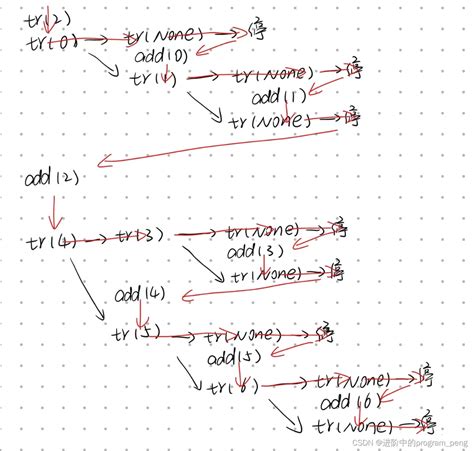 tr(2)
tr(0) tr(None) 停
add(0)
tr(1) tr(None) 停
add(1)
tr(None) 停
add(2)
tr(4) tr(3) tr(None) 停
add(3)
tr(None) 停
add(4)
tr(5) tr(None) 停
add(5)
tr(6) tr(None) 停
add(6)
tr(None) 停
CSDN @进阶中的program_peng